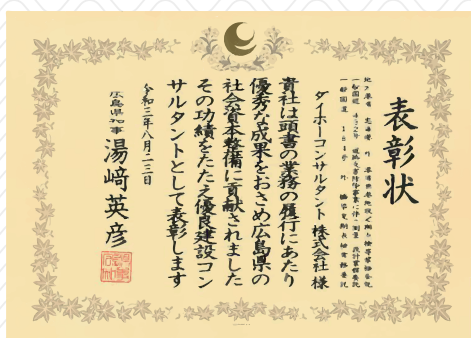 表彰状
ダイホーコンサルタント株式会社 様
貴社は頭書の業務の履行にあたり
優秀な成果をおさめ広島県の
社会資本整備に貢献されました
その功績をたたえ優良建設コン
サルタントとして表彰します
令和三年八月二三日
広島県知事 湯﨑英彦